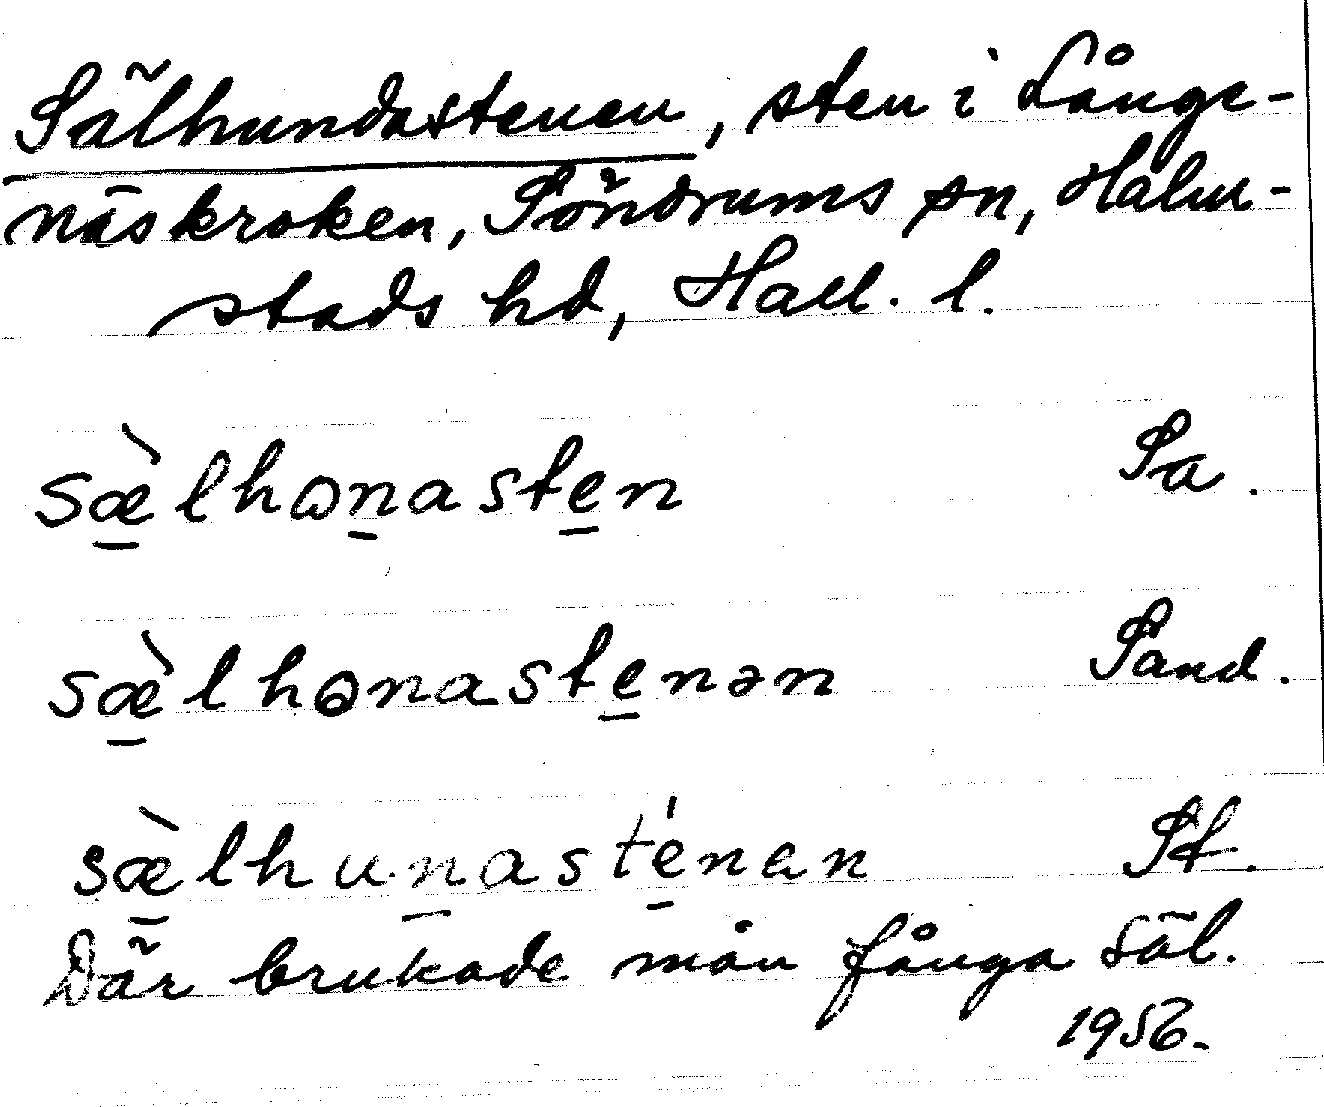 Sälhundastenen, sten i Långe-
näskroken, Söndrums sn, Halm-
stads hd, Hall. l.
sæ̀lhωnasten Sa.
sæ̀lhωnastenən Sand.
sæ̀lhunasténen Sf.
Där brukade man fånga säl.
1956.